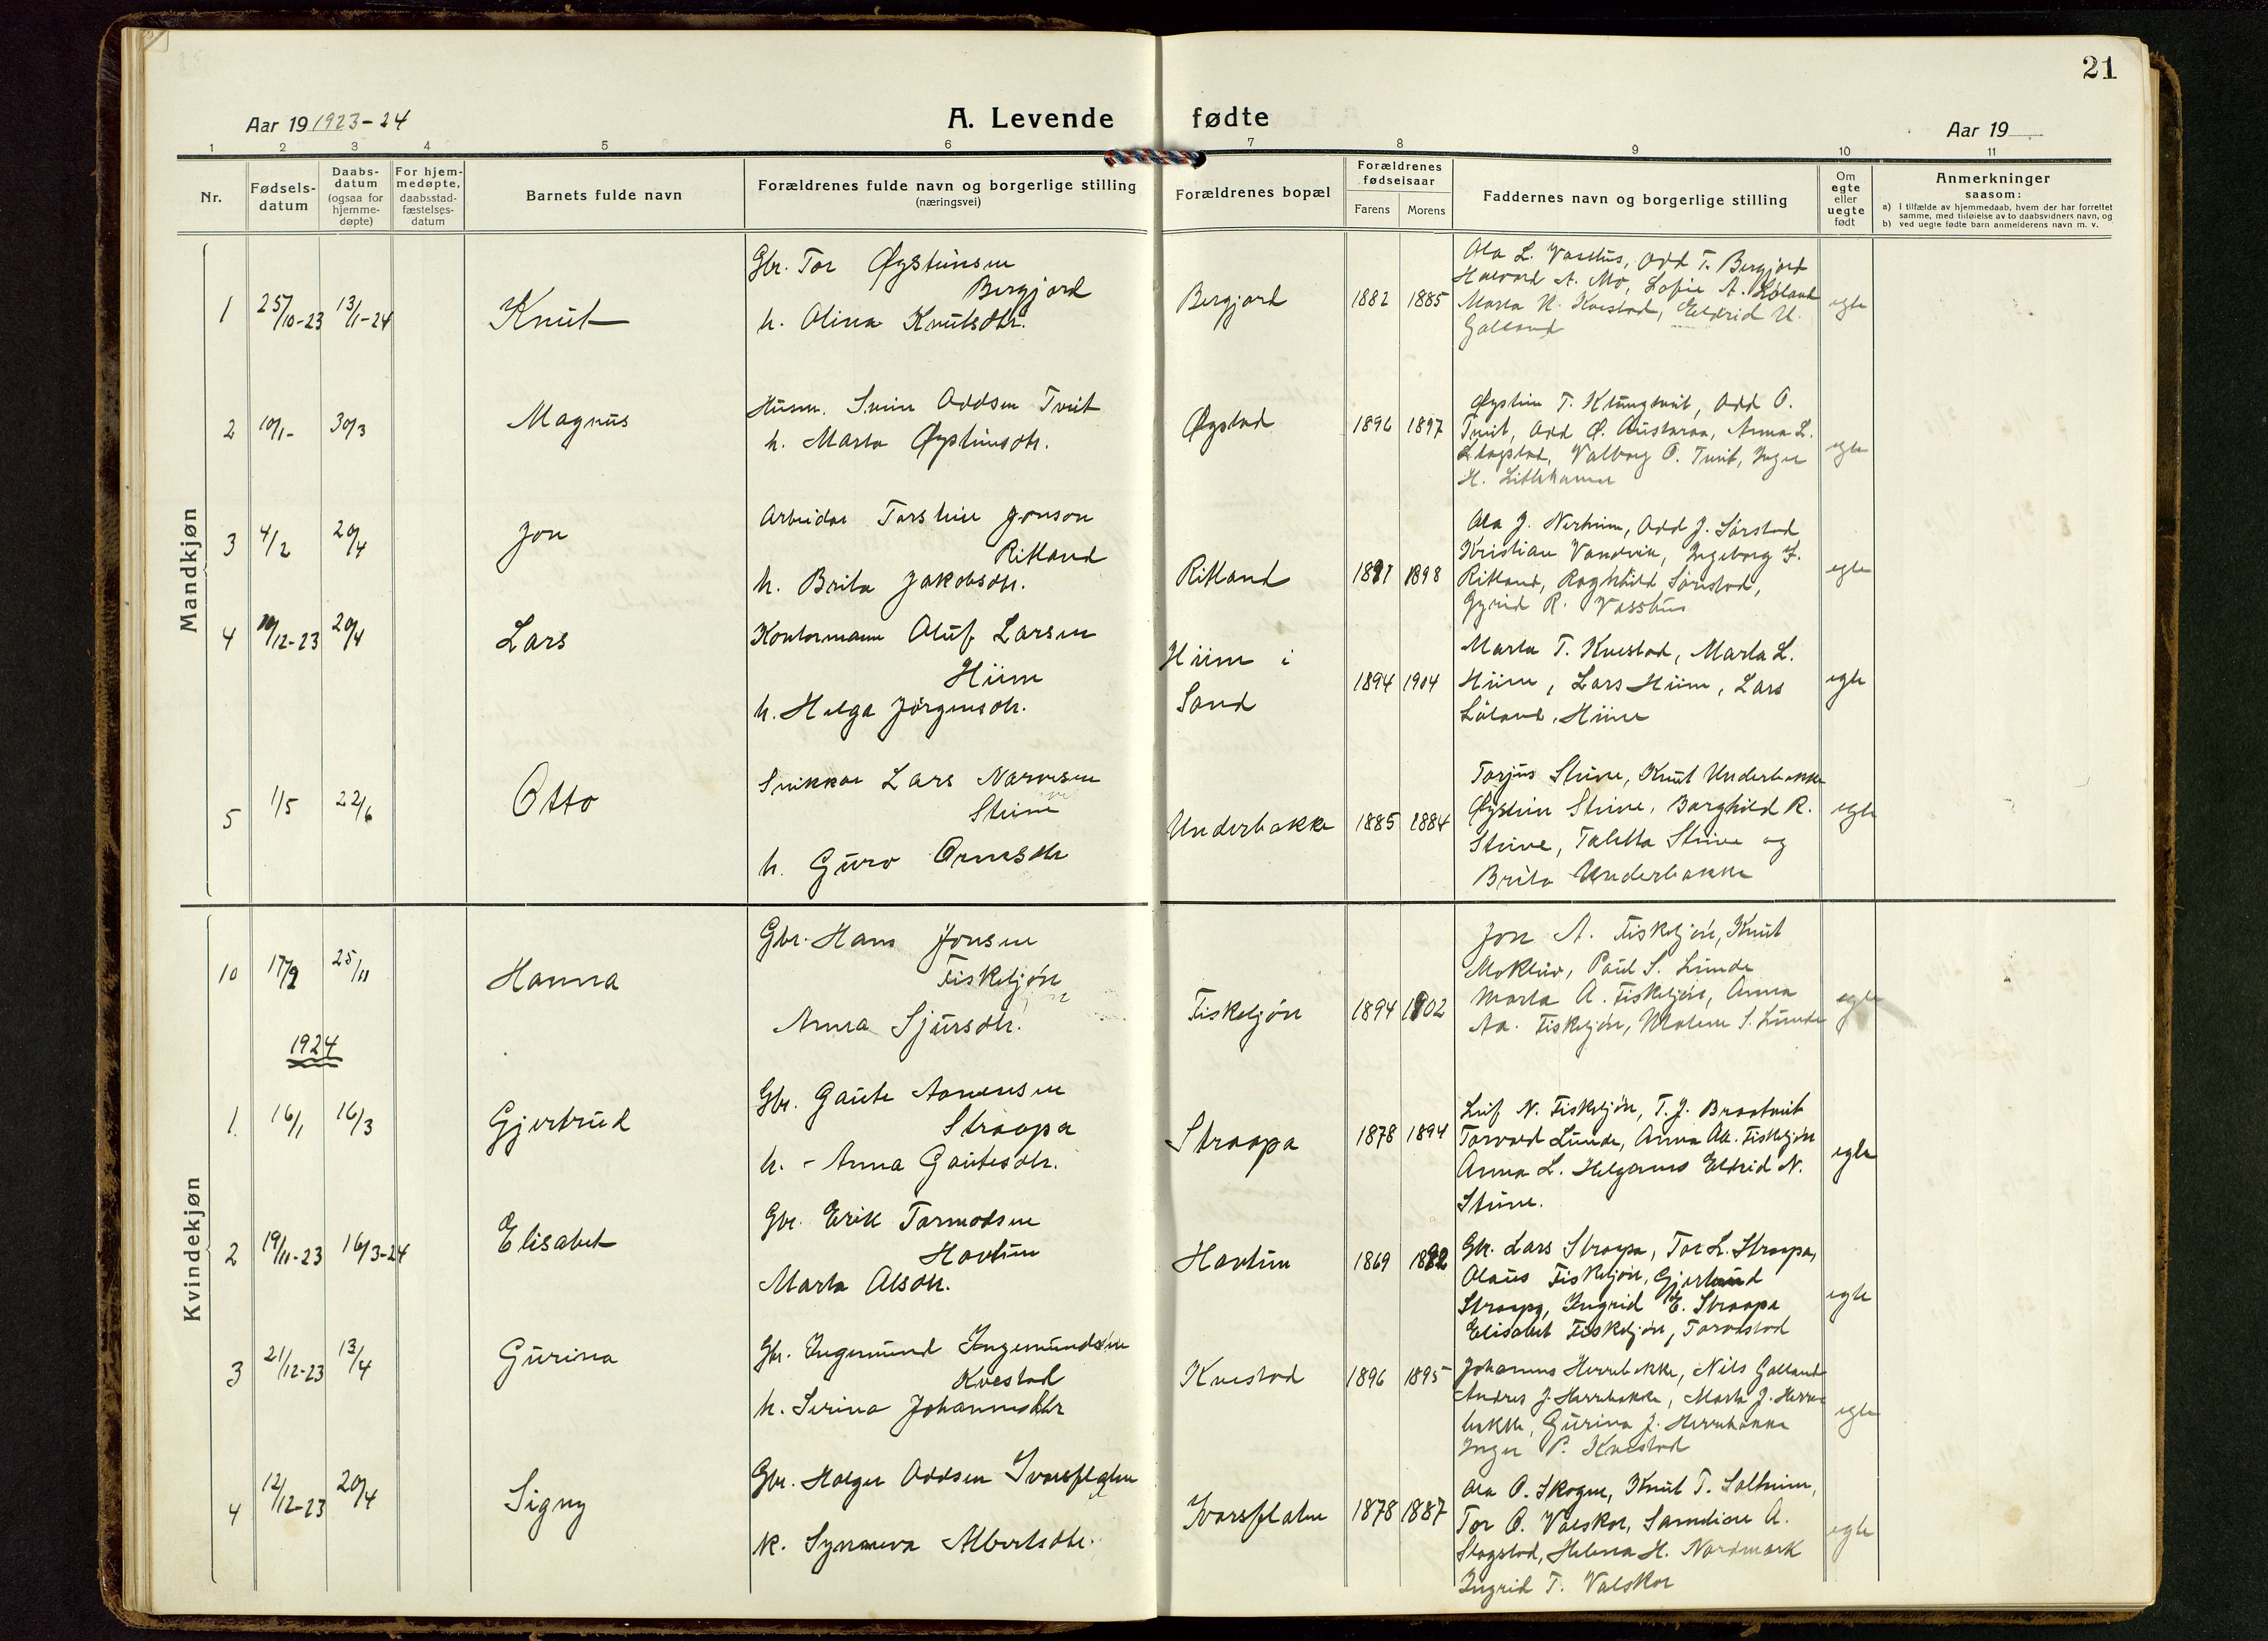 21
Aar 19 1923-24
A. Levende fødte
Aar 19
1 2 3 4 5 6 7 8 9 10 11
Nr.
Fødsels-
datum
Daabs-
datum
(ogsaa for
hjemme-
døpte)
For hjem-
medøpte,
daabsstad-
fæstelses-
datum
Barnets fulde navn
Forældrenes fulde navn og borgerlige stilling
(næringsvei)
Forældrenes bopæl
Forældrenes
fødselsaar
Farens Morens
Faddernes navn og borgerlige stilling
Om
egte
eller
uegte
født
Anmerkninger
saasom:
a) i tilfælde av hjemmedaab, hvem der har forrettet
samme, med tilføielse av to daabsvidners navn, og
b) ved uegte fødte barn anmelderens navn m. v.
Mandkjøn
1 25/10-23 13/1-24 Knut
Gbr. Tor Øysteinsen
Bergjord
h. Olina Knutsdtr.
Bergjord 1882 1885
Ola L. Vasthus, Odd T. Bergjord
Halvard A. Mo, Sofie A. Løland
Marta N. Kvestad, Eldrid N.
Galland
egte
2 10/1- 30/3 Magnus
Husm. Svein Oddsen Tveit
h. Marta Øysteinsdtr.
Øystad 1896 1897
Øystein T. Klungtveit, Odd O.
Tveit, Odd Ø. Austaraa, Anna L.
Slagstad, Valborg O. Tveit, Inger
H. Litlehamar
egte
3 4/2 20/4 Jon
Arbeidar Torstein Jonson
Ritland
h. Brita Jakobsdtr.
Ritland 1897 1898
Ola J. Nerheim, Odd J. Sørstad
Kristian Vandvik, Ingeborg J.
Ritland, Raghild Sørestad,
Gyrid R. Vasshus
egte
4 20/4 Lars
Kontormann Oluf Larsen
Hiim
h. Helga Jørgensdtr.
Hiim i
Sand
1894 1904
Marta T. Kvestad, Marta L.
Hiim, Lars Hiim, Lars
Løland, Hiim
egte
5 1/5 22/6 Otto
Snikkar Lars Narvesen
Steine
h. Guro Ormsdtr
Underbakke 1885 1884
Torjus Steine, Knut Underbakke
Øystein Steine, Borghild R.
Steine, Taletta Steine og
Brita Underbakke
egte
Kvindekjøn
10 17/9 25/11 Hanna
Gbr. Hans Jonsen
Fisketjøn
Anna Sjursdtr.
Fisketjøn 1894 1902
Jon A. Fisketjøn, Knut
Mokleiv, Paul S. Lunde
Marta A. Fisketjøn, Anna
Aa. Fisketjøn, Malene S. Lunde
egte
1924
1. 16/1 16/3 Gjertrud
Gbr. Gaute Aanensen
Straapa
h. - Anna Gautesdtr.
Straapa 1878 1894
Leif N. Fisketjøn, T. J. Braatveit
Torvald Lunde, Anna Aa. Fisketjøn
Anna L. Helganes Eldrid N.
Steine.
egte
2 19/11-23 16/3-24 Elisabet
Gbr. Erik Tormodsen
Havtun
Marta Olsdtr.
Havtun 1869 1882
Gbr. Lars Straapa, Tor L. Straapa,
Olaus Fisketjøn, Gjertrud
Straapa, Ingrid E. Straapa
Elisabet Fisketjøn, Tarastad
egte
3 21/12-23 13/4 Gurina
Gbr. Ingemund Ingemundsen
Kvestad
h. Serina Johannesdtr
Kvestad 1896 1895
Johannes Herrebakke, Nils Galland
Andres J. Herrebakke, Marta J. Herre-
bakke, Gurina J. Herrebakke
Inger P. Kvestad
egte
4 12/12-23 20/4 Signy
Gbr. Holger Oddsen Ivarsflaten
k. Synneva Albertsdtr.
Ivarsflaten 1878 1887
Ola O. Skogen, Knut T. Saltheim,
Tor O. Valskor, Samdine A.
Slagstad, Helena H. Nordmark
Ingrid T. Valskor
egte